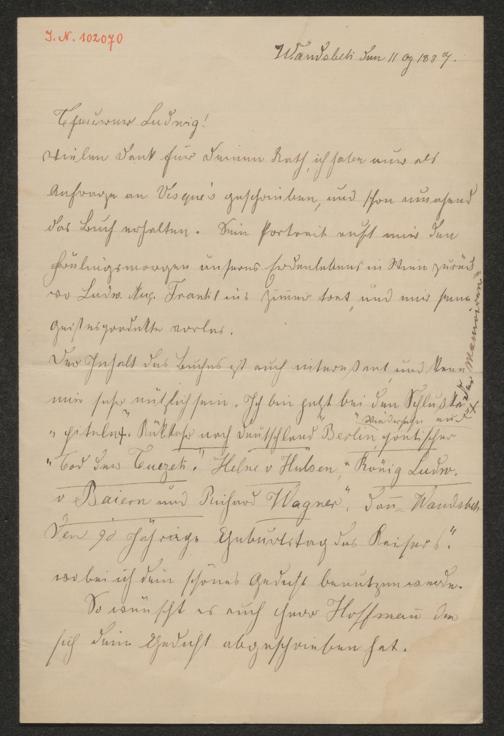 J. N. 102070
Wandsbek den 11
Theurer Ludwig!
Vielen Dank für Deinen Rath, ich habe nur als
Anfrage an Vesque's geschrieben, und schon umgehend
das Buch erhalten. Sein Portrait ruft mir den
Frühlingsmorgen unseres Erdenlebens in Wien zurück
wo Ludw. Aug. Frankl ins Zimmer trat, und mir seine
Geistesprodukte vorlas.
Der Inhalt des Buches ist auch interessant, und kann
mir sehr nützlich sein. Ich bin jetzt bei den Schluß
der Memoiren
"Rückkehr nach Deutschland" Berlin
"Tod der Tuczek." Helene v Hulsen, "König Ludw.
v Baiern und Richard Wagner", dann Wandsbek
den 90 jährige Geburtstag des Kaisers."
wobei ich dein schönes Gedicht benutzen werde.
So wünscht es auch Herr Hoffmann der
sich dein Gedicht abgeschrieben hat.